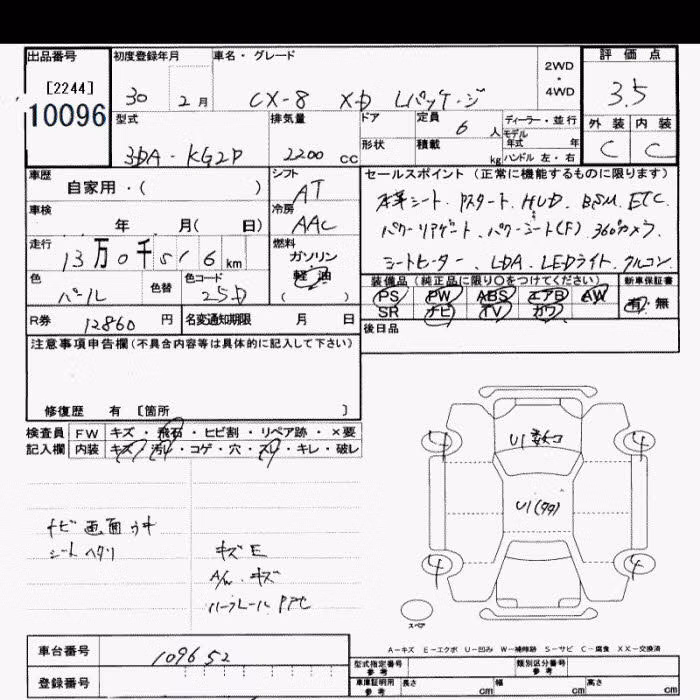 出品番号 初度登録年月 車名・グレード 2WD・4WD 評価点
[2244] 30 2月 CX-8 XD Lパッケージ 3.5
10096 型式 排気量 ドア 定員 6人 ディーラー・並行 外装 内装
3DA-KG2P 2200cc 形状 積載 kg モデル年式 年 ハンドル 左・右 C C
車歴 自家用・( ) シフト AT セールスポイント(正常に機能するものに限ります)
車検 年 月( 日) 冷房 AAC 本革シート、Pスタート、HUD、BSM、ETC
走行 13万0千516km 燃料 ガソリン 軽油 ( ) パワーリアゲート、パワーシート(F) 360°カメラ
シートヒーター、LDA、LEDライト、クルコン
色 パール 色替 色コード 25D 装備品(純正品に限り○をつけてください) 新車保証書
PS PW ABS エアB AW 有・無
SR ナビ TV カワ
R券 12860円 名変通知期限 月 日 後日品
注意事項申告欄(不具合内容等は具体的に記入して下さい)
修復歴 有 [箇所 ]
検査員 FW キズ・飛石・ヒビ割・リペア跡・×要
記入欄 内装 キズ・汚レ・コゲ・穴・スレ・キレ・破レ
U1
4 4
U1
4 4
ナビ画面ウキ
シートヘタリ
キズE
A/w キズ
スペア
A-キズ E-エクボ U-凹み W-補修跡 S-サビ C-腐食 XX-交換済
車台番号 109652
型式指定番号 参考 類別区分番号 参考
登録番号 車庫証明用 参考 長さ cm 幅 cm 高さ cm